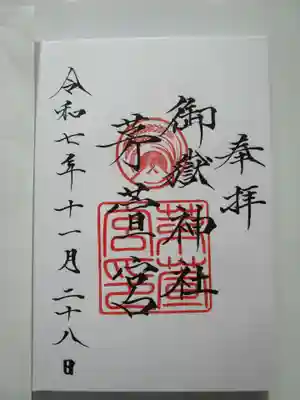 奉拝
御嶽神社
茅萱宮
令和七年十一月二十八日